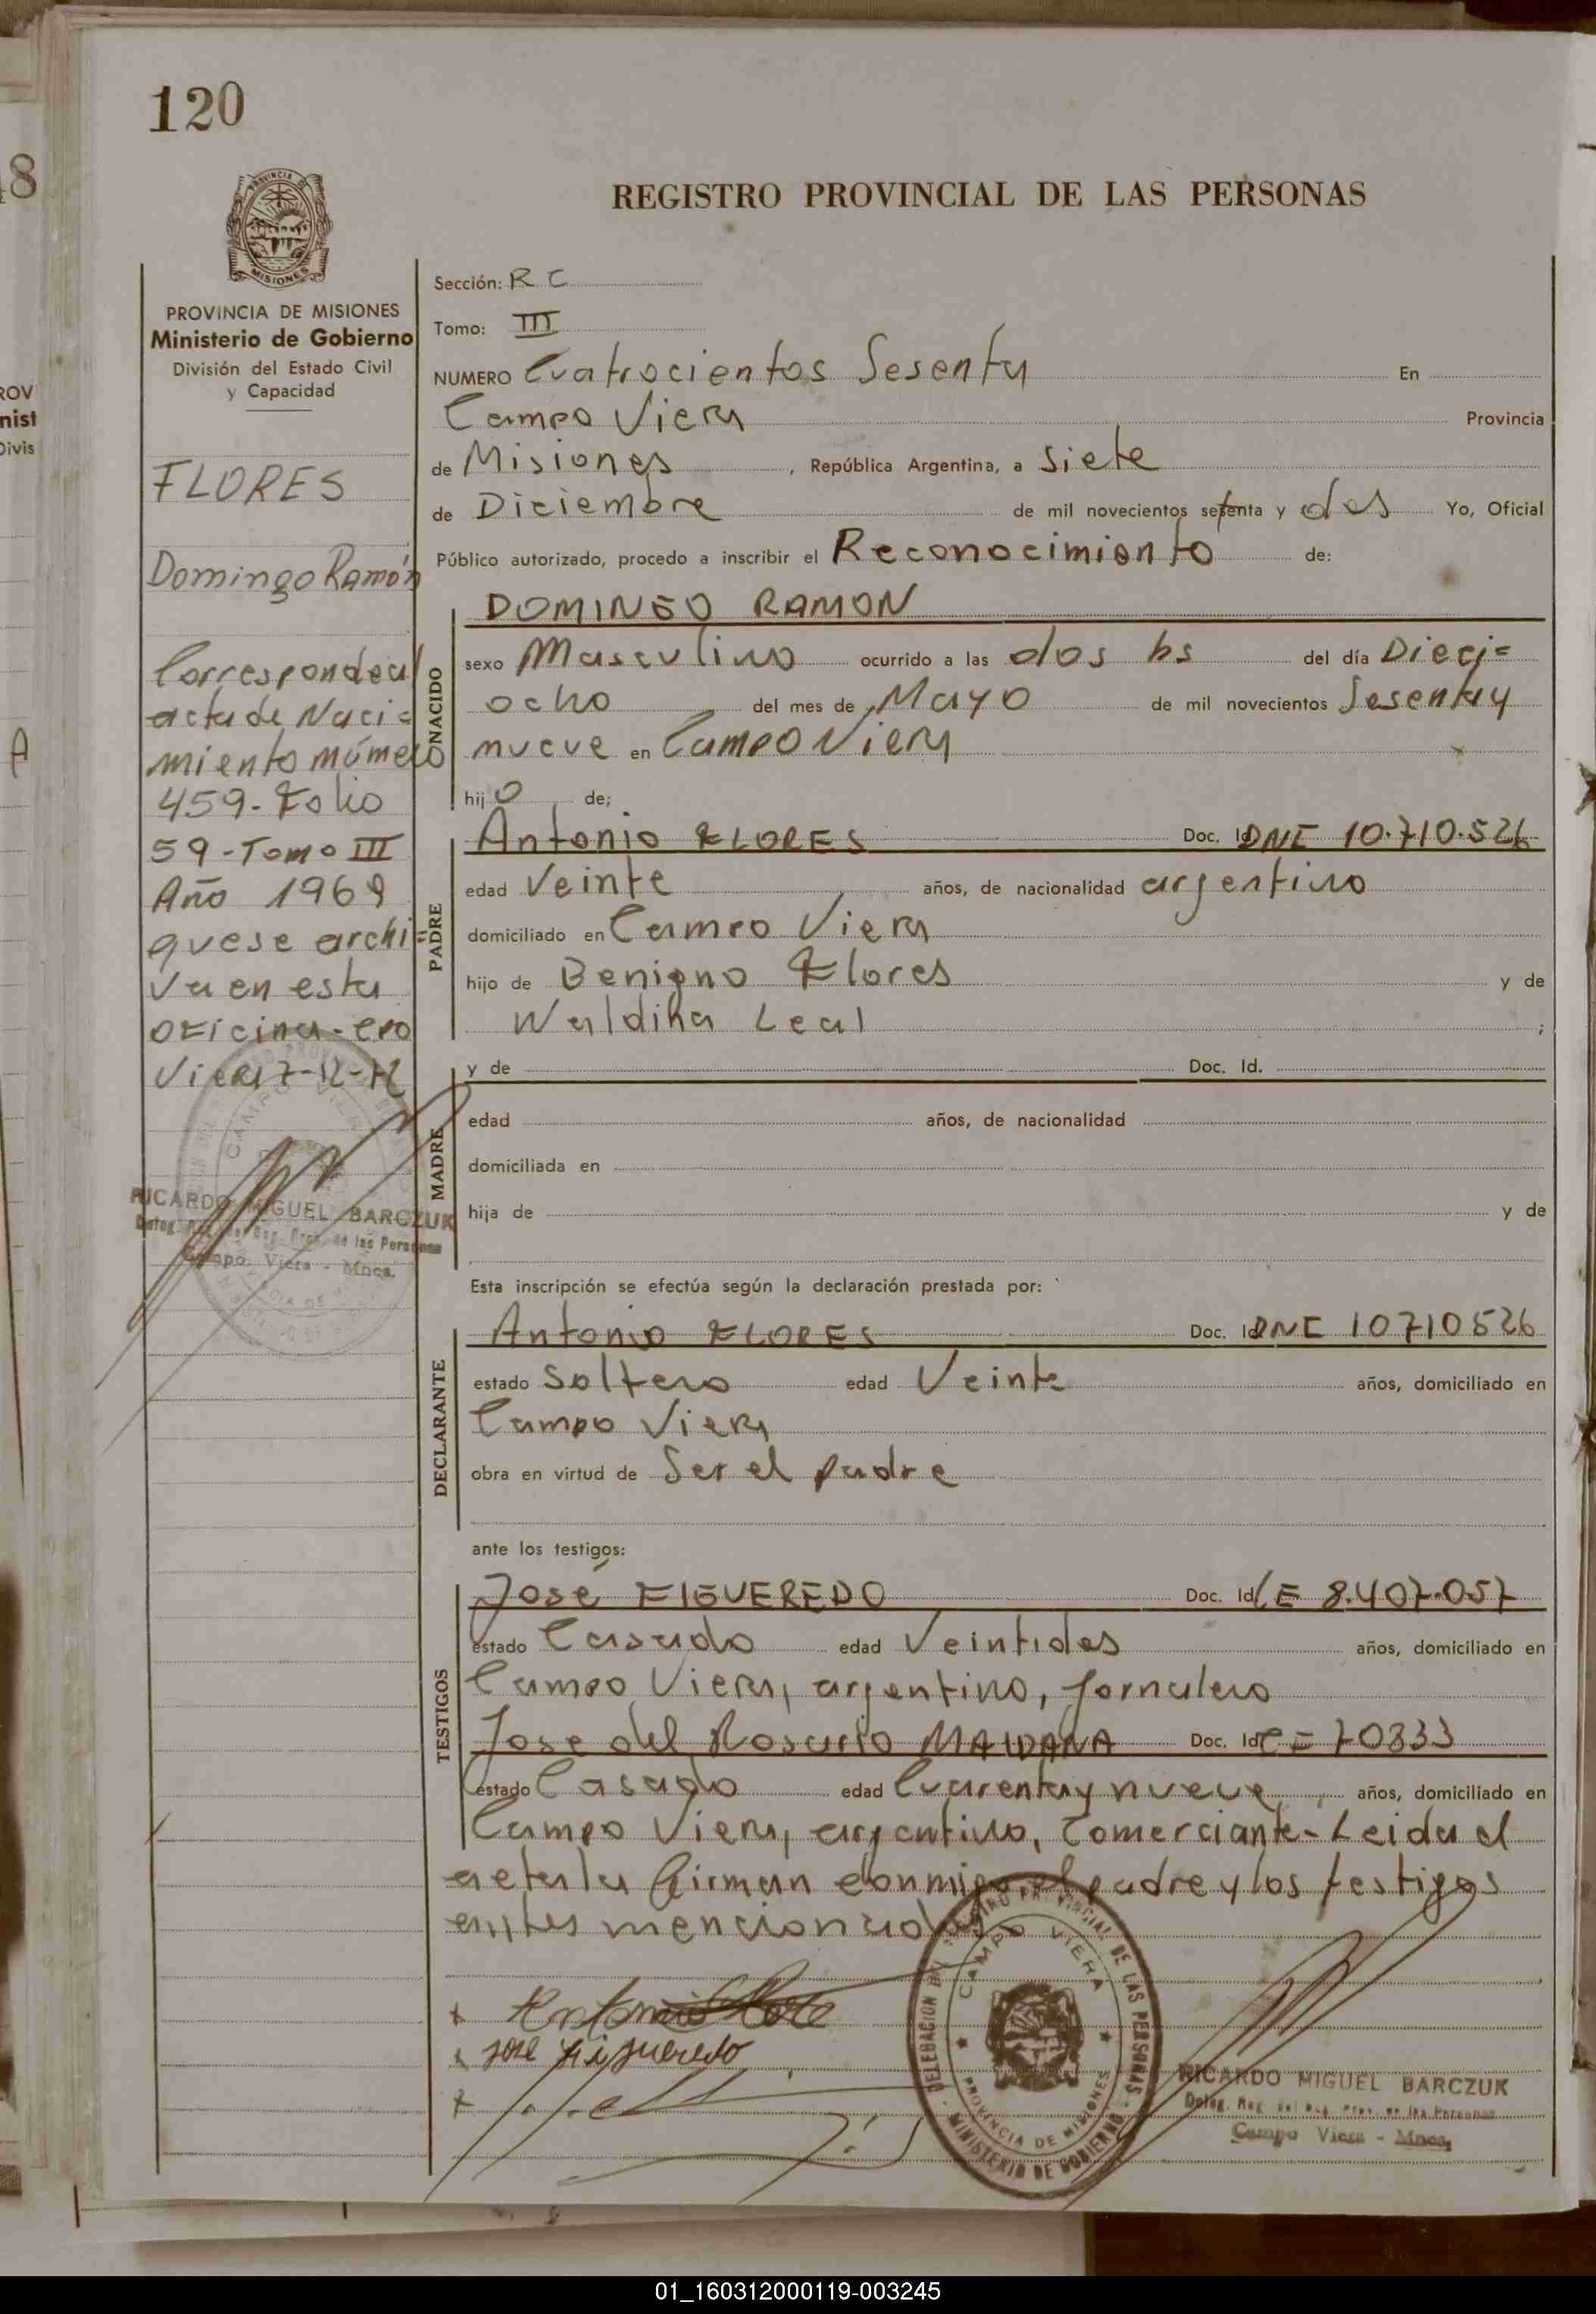 120
8
PROVINCIA DE
MISIONES
REGISTRO PROVINCIAL DE LAS PERSONAS
PROVINCIA DE MISIONES
Ministerio de Gobierno
División del Estado Civil
y Capacidad
ROV
nist
Divis
A
FLORES
Domingo Ramón
Corresponde al
acta de Naci=
miento número
459-Folio
59-Tomo III
Año 1969
que se archi=
va en esta
oficina-Cpo
Viera 7-12-72
CAMPO VIERA
RICARDO MIGUEL BARCZUK
Deleg. Reg. del Reg. Prov. de las Personas
Campo Viera - Mnes.
Sección: R C
Tomo: III
NUMERO Cuatrocientos Sesenta En
Campo Viera Provincia
de Misiones, República Argentina, a siete
de Diciembre de mil novecientos setenta y dos Yo, Oficial
Público autorizado, procedo a inscribir el Reconocimiento de:
NACIDO
DOMINGO RAMON
sexo Masculino ocurrido a las dos hs del día Dieci=
ocho del mes de Mayo de mil novecientos Sesenta y
nueve en Campo Viera
hijo de;
PADRE
Antonio FLORES Doc. Id. DNI 10.710.526
edad Veinte años, de nacionalidad argentino
domiciliado en Campo Viera
hijo de Benigno Flores y de
Waldina Leal ;
MADRE
y de Doc. Id.
edad años, de nacionalidad
domiciliada en
hija de y de
Esta inscripción se efectúa según la declaración prestada por:
DECLARANTE
Antonio FLORES Doc. Id. DNI 10710526
estado Soltero edad Veinte años, domiciliado en
Campo Viera
obra en virtud de Ser el padre
ante los testigos:
TESTIGOS
José FIGUEREDO Doc. Id. LE 8.407.057
estado Casado edad Veintidos años, domiciliado en
Campo Viera, argentino, Jornalero
Jose del Rosario MAIDANA Doc. Id. CI 70333
estado Casado edad Cuarenta y nueve años, domiciliado en
Campo Viera, argentino, Comerciante-Leida el
acta la firman conmigo, el padre y los testigos
antes mencionados
Antonio Flore
jose figueredo
DELEGACION DEL REGISTRO PROVINCIAL DE LAS PERSONAS
CAMPO VIERA
PROVINCIA DE MISIONES
MINISTERIO DE GOBIERNO
RICARDO MIGUEL BARCZUK
Deleg. Reg. del Reg. Prov. de las Personas
Campo Viera - Mnes.
01_160312000119-003245